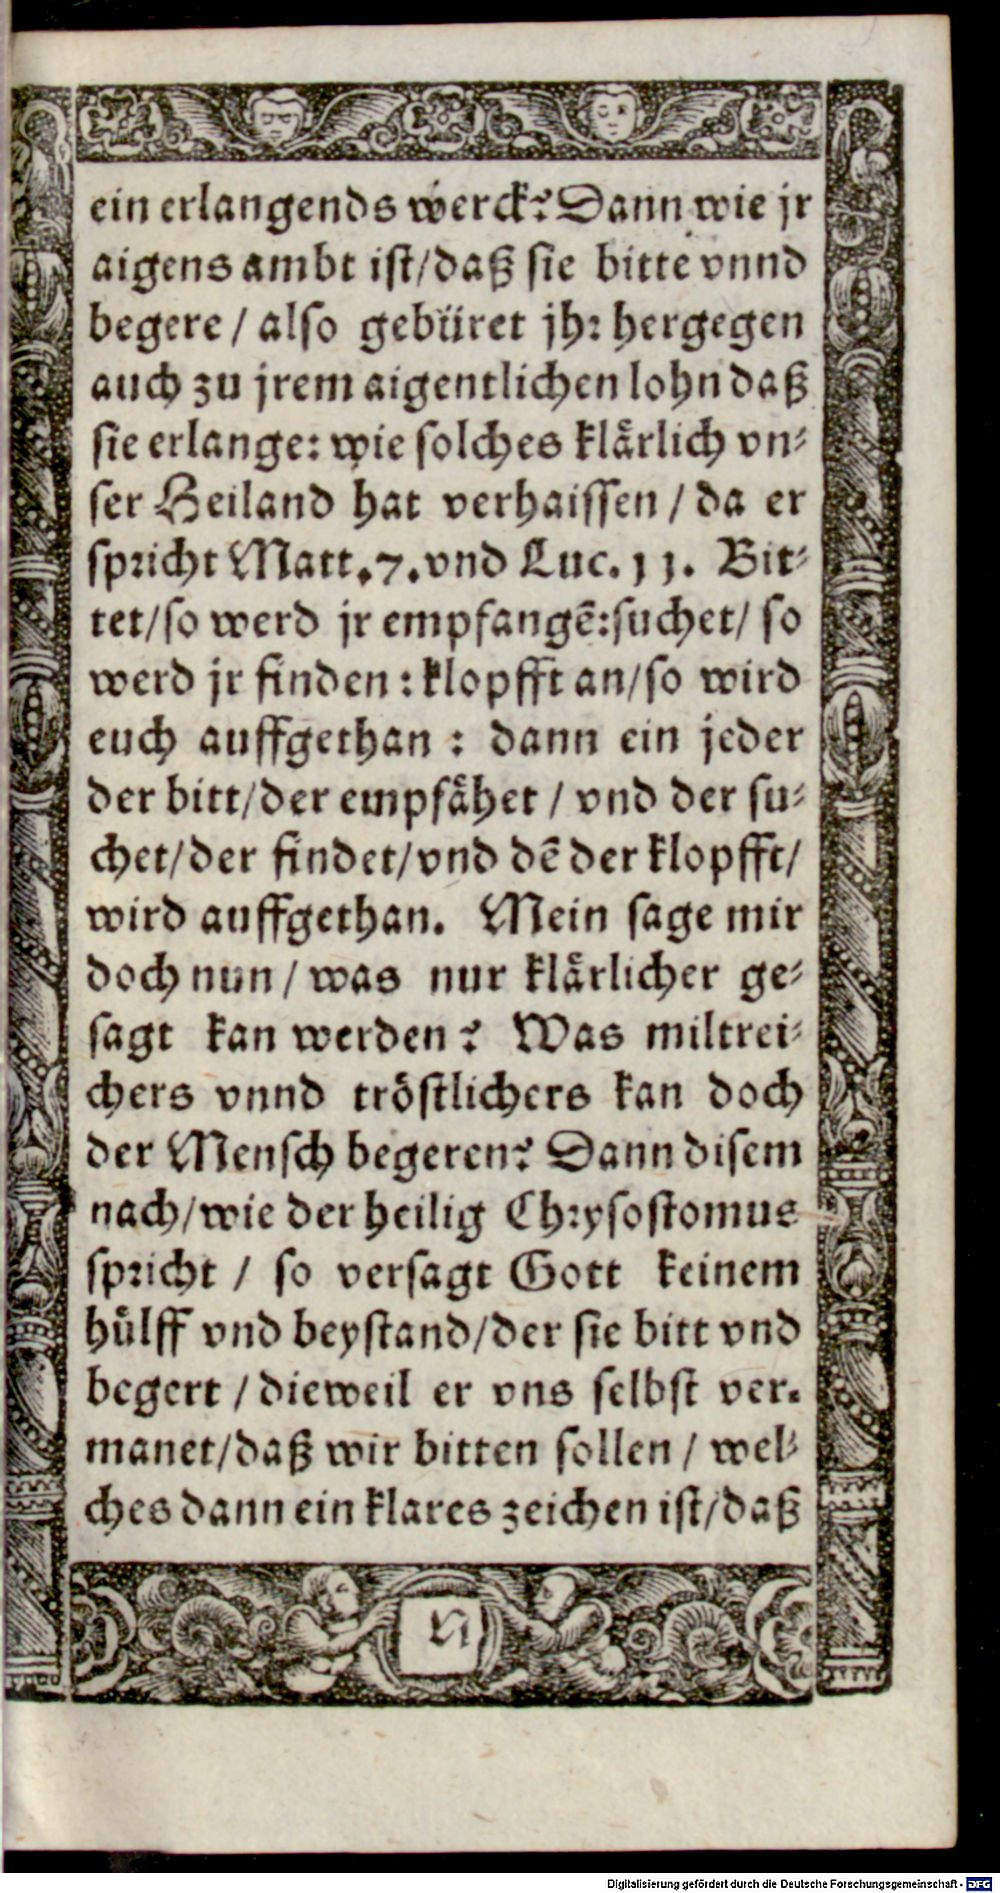 ein erlangends werck? Dann wie jr
aigens ambt ist/daß sie bitte vnnd
begere / also gebüret jhr hergegen
auch zu jrem aigentlichen lohn daß
sie erlange: wie solches klårlich vn-
ser Heiland hat verhaissen / da er
spricht Matt. 7. vnd Luc. 11. Bit-
tet/so werd jr empfangẽ: suchet/ so
werd jr finden: klopfft an/so wird
euch auffgethan : dann ein jeder
der bitt/der empfåhet / vnd der su-
chet/der findet/vnd dẽ der klopfft/
wird auffgethan. Mein sage mir
doch nun / was nur klårlicher ge-
sagt kan werden? Was miltrei-
chers vnnd tröstlichers kan doch
der Mensch begeren? Dann disem
nach/wie der heilig Chrysostomus
spricht / so versagt Gott keinem
hůlff vnd beystand/der sie bitt vnd
begert / dieweil er vns selbst ver-
manet/daß wir bitten sollen / wel-
ches dann ein klares zeichen ist/daß
Digitalisierung gefördert durch die Deutsche Forschungsgemeinschaft - DFG